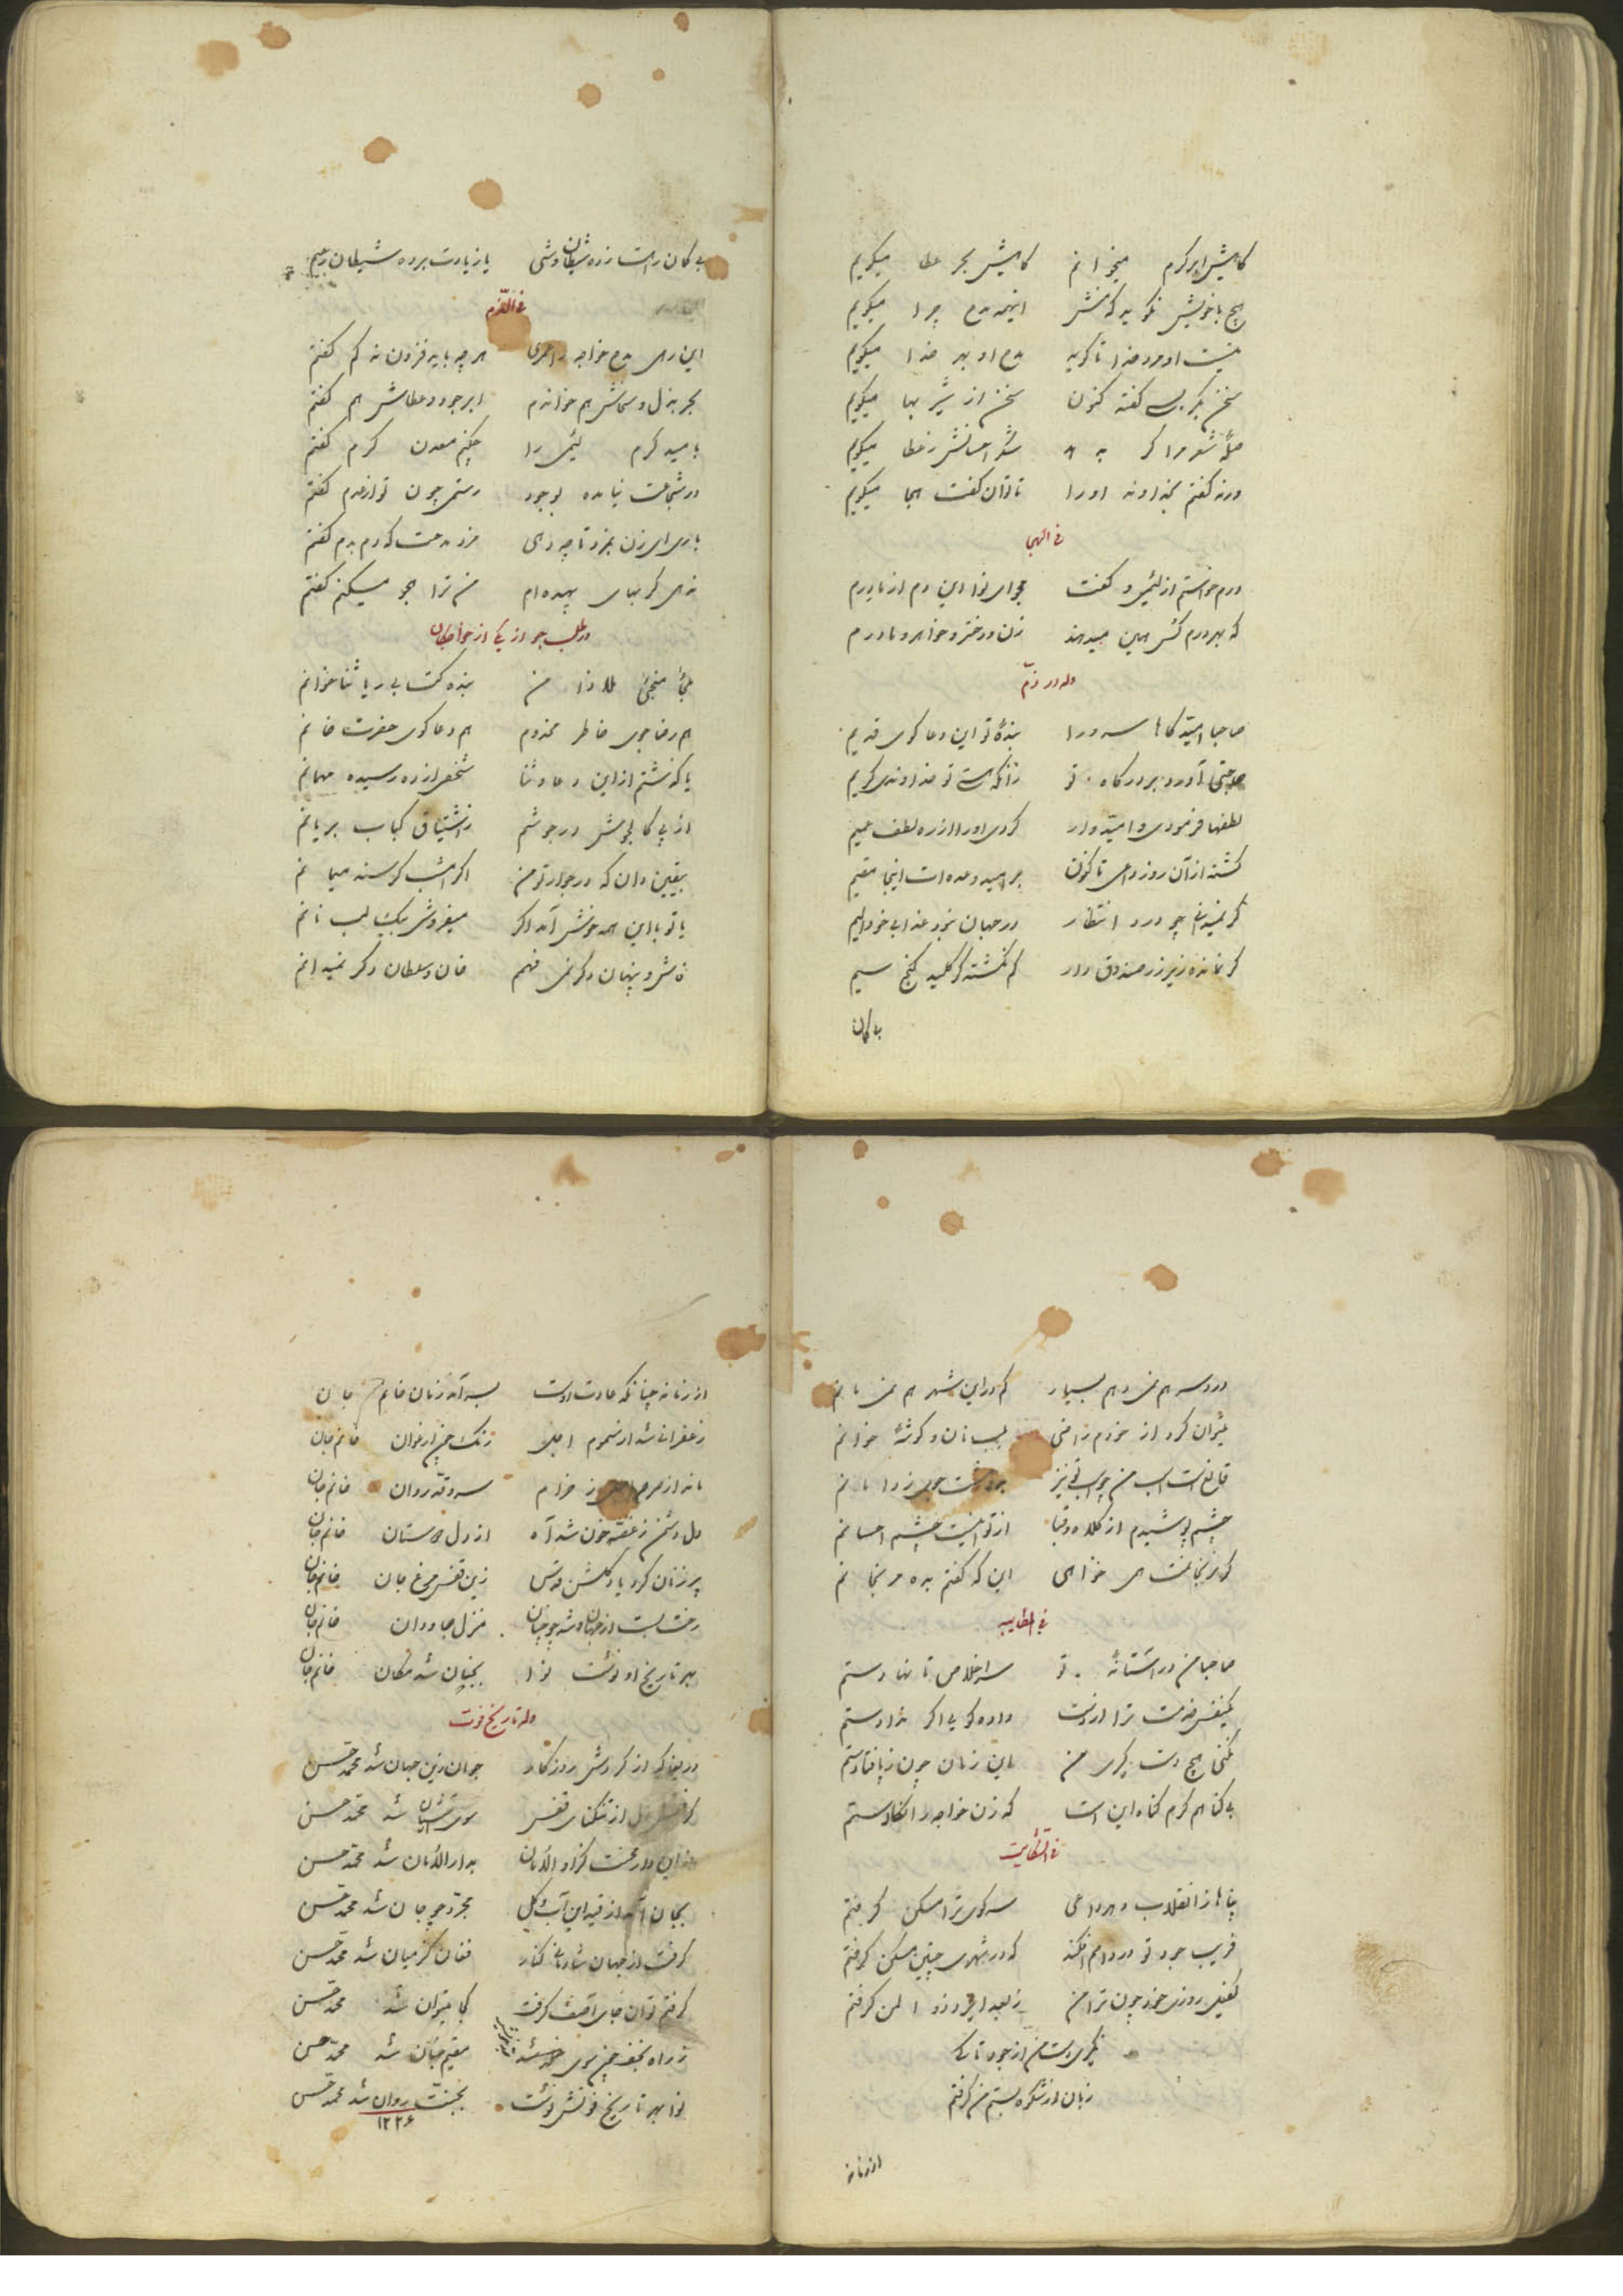 گاهیش ابر کرم میخوانم گاهیش بحر عطا میگویم
هیچ با خویش نگوید که منش اینهمه مدح چرا میگویم
نیست او مرد خدا تا گوید مدح او بهر خدا میگویم
سخن گفته کنون سخن از شیر بها میگویم
صلهٔ شعر مرا گر به میگویم
ورنه گفتم بخداوند او را تا توان گفت هجا میگویم
فی الهجا
درم خواستم از لئیمی و گفت مجو ای نوا این دم از ما درم
که بهر درم کس همین میدهند زن و دختر و خواهر و مادرم
وله در ذم
صاحبا امیدگاها سرورا بندهٔ تو این دعاگوی قدیم
حاجتی آورد بر درگاه تو زانکه هست تو خداوند کریم
لطفها فرمودی و امیدوار کردی او را از ره لطف عمیم
گشته از آن روز و اعی تاکنون بر امید وعده‌ات اینجا مقیم
گر نمیدانی چه درد انتظار در جهان نبود عذابی خود الیم
گر نمانده زیر زر صندوق دار گم نگشته گر کلید گنج سیم
بی گمان
بی گمان راهت زده شیطان وشی یا ز یادت برده شیطان رجیم
فی الذم
این رهی مدح خواجه را عمری هر چه باید فزون نه کم گفتم
بحر بذل و سخاش هم خواندم ابر جود و عطاش هم گفتم
بامید کرم لئیمی را معدن کرم گفتم
در شجاعت نیامده بوجود رستمی چون تو از عدم گفتم
باری ای زن بمزد تا چه دهی مزد مدحت که دم بدم گفتم
ندهی گر بهای بیهده‌ام من ترا هجو میکنم گفتم
در طلب جو از یکی از خواجگان
ملجأ منجئ ملاذا من بنده کت بی ریا ثنا خوانم
هم رضا جوی خاطر مخدوم هم دعا گوی حضرت خانم
یا گذشتم از این دعا و ثنا شخص از ره رسیده مهمانم
از پی کالجوش در جوشم ز اشتیاق کباب بریانم
بیقین دان که در جوار تو من اگر امشب گرسنه میمانم
با تو با این همه خوش آمد اگر میفروشی بیک لب نانم
فاش و پنهان دگر نمی فهمم خان و سلطان دگر نمیدانم
در دو سه هم نمی دهم بسیار کم در این شهر هم نمی مانم
میتوان کرد از خودم راضی بلب نان و گوشهٔ خوانم
قانع است اسب من
چشم پوشیدم از کلاه و قبا از تو این نیست چشم احسانم
گر نرنجانمت همی خواهی این که گفتم بده مرنجانم
فی المطایبه
صاحبا من در آستانهٔ تو سر اخلاص تا نهادستم
یکنفس خدمت ترا از دست داده گو بی اگر ندادستم
نکنی هیچ دستگیری من این زمان چون ز پا فتادستم
بی گناهم گرم گناه این است که زن خواجه را نگادستم
فی الشکایت
پناها ز انقلاب دهر سر کوی ترا مسکن گرفتم
فریب جود تو در دامم افکند که در شهری چنین مسکن گرفتم
کفیل روزی خود چون ترا من گرفتم
نکردی دست من از جود تا پر
زبان از شکوه بستم من گرفتم
از زمانه
از زمانه چنانکه عادت اوست بسر آمد زمان خانم جان
زعفرانی شد از سموم اجل رنگ چون ارغوان خانم جان
ماند از صرصر اجل ز خرام سرو قد روان خانم جان
دل دشمن ز غصه خون شد آه از دل دوستان خانم جان
پر زنان کرد یاد گلشن قدس زین قفس مرغ جان خانم جان
رخت بست از جهان و شد چو جنان منزل جاودان خانم جان
بهر تاریخ او نوشت نوا بجنان شد مکان خانم جان
وله تاریخ فوت
دریغا که از گردش روزگار جوان زین جهان شد محمد حسن
از تنگنای قفس سوی آشیان شد محمد حسن
بدار الامان شد محمد حسن
بجان آمد از قید این آب و گل مجرد چو جان شد محمد حسن
گرفت از جهان شادمانی کنار فغان کز میان شد محمد حسن
گرفتم توان جای آصف گرفت کجا میتوان شد محمد حسن
مقیم جنان شد محمد حسن
نوا بهر تاریخ فوتش نوشت بجنت روان شد محمد حسن
۱۲۲۶